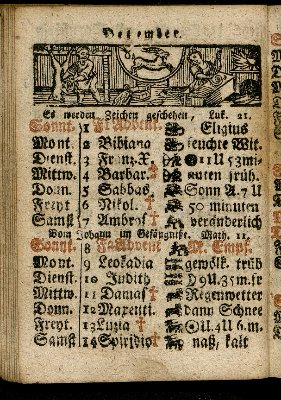 Dezember.
Es werden Zeichen geschehen, Luk. 21.
Sonnt. 1 Advent. Eligius
Mont. 2 Bibiana feuchte Wit.
Dienst. 3 Franz.X. 11 U 53 mi-
Mittw. 4 Barbar. nuten früh.
Donn. 5 Sabbas, Sonn A. 7 U
Freyt 6 Nikol. † 50 minuten
Samst 7 Ambros † veränderlich
Vom Johann im Gefängnisse. Math. 11.
Sonnt. 8 Advent M. Empf.
Mont. 9 Leokadia gewölk. trüb
Dienst. 10 Judith 9 U. 35 m. fr
Mittw. 11 Damas † Regenwetter
Donn. 12 Maxenti. dann Schnee
Freyt. 13 Luzia † U. 4 U. 6 m.
Samst 14 Spiridio † naß, kalt